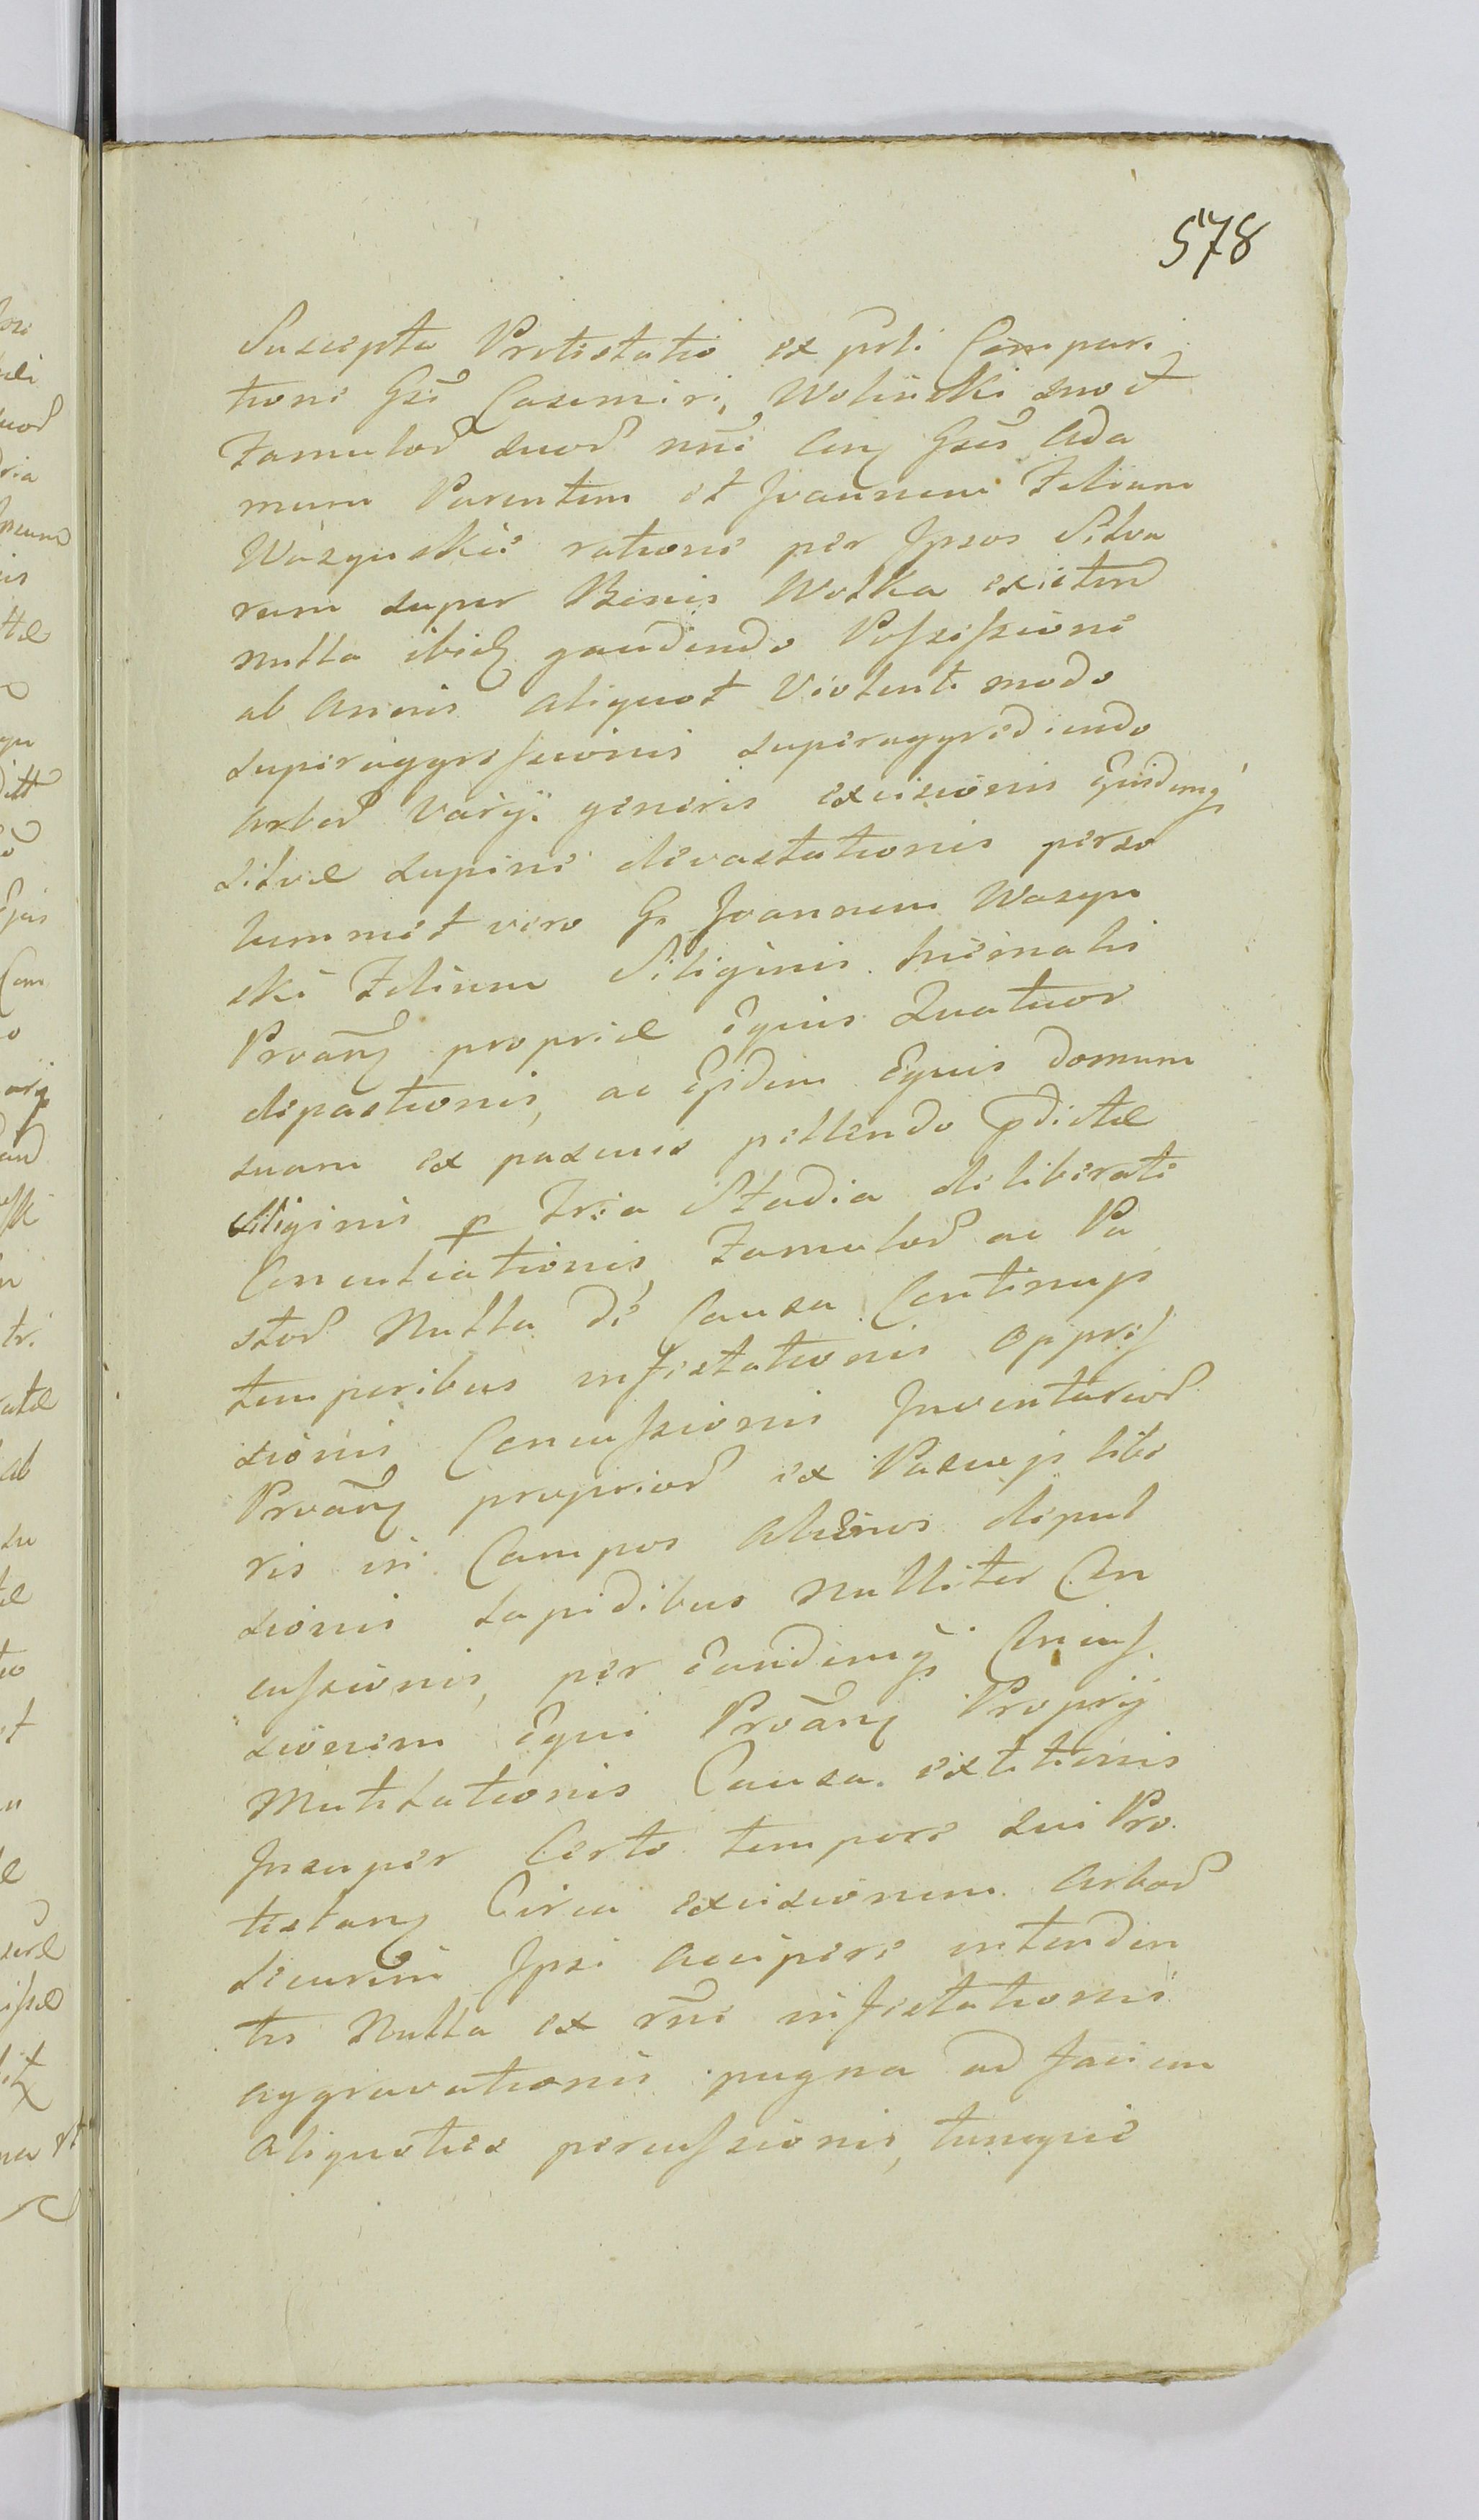 578
Suscepta Protestatio ex psti Compari
tione Gsi Casimiri Woliński suo et
Famulor suor nne Cnq Gsos Ada
mum Parentem et Joannem Filium
Wazynskie ratione per Ipsos Silva
rum super Bonis Wolka existen
nulla ibidq gaudendo Possessione
ab Annis aliquot Violenti modo
superaggressionis superaggrediendo
Arbor Varÿ generis excisionis Ejusdemq
Silvæ supine devastationis perso
lummet vero G. Joannem Wazyn
ski Filium Siliginis hiemalis
Proanq propriæ Equis Quatuor
depastionis, ac Eisdem Equis domum
suam ex pascuis pellendo pdictæ
siliginis p Tria Stadia deliberate
Conculcationis, Famulor ac Pa
stor Nulla de Causa Continujs
temporibus infestationis oppres
sionis Concussionis Inventarior
Proanq proprior ex Pascujs libe
ris in Campos Alienos depul
sionis Lapidibus Nulliter Con
cussionis, per Eandemq Concus
sionem Equi Proanq Proprÿ
Mutilationis Causa extitionis
Insuper Certo tempore Sui Pro
testanq Circa excisionem Arbor
securim Ipsi Accipere intenden
tis Nulla ex rne infestationis
aggravationis pugna ad faciem
aliquoties percussionis, tuncque